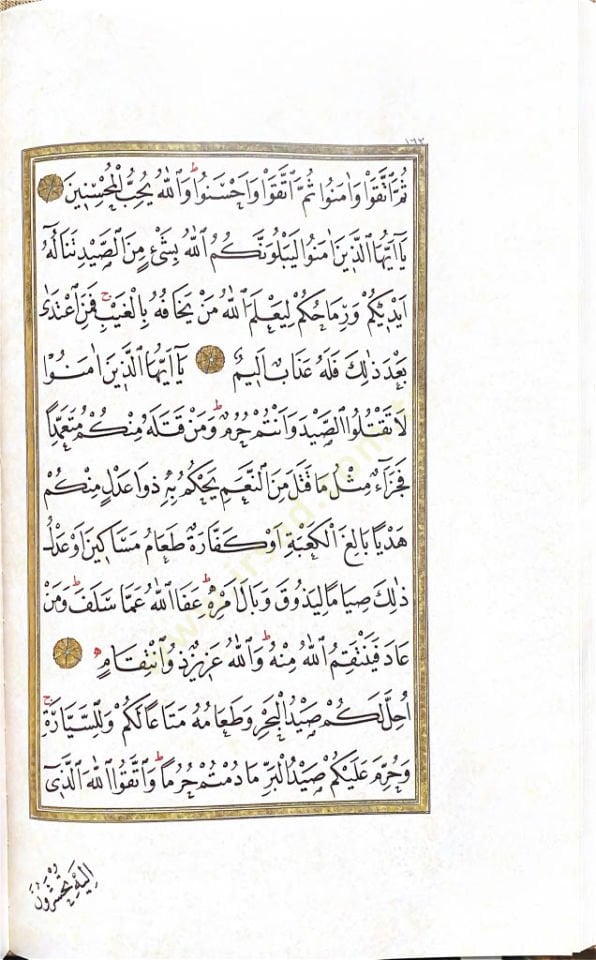 ١٦٢
ثُمَّ ٱتَّقَوْا وَاٰمَنُوا ثُمَّ ٱتَّقَوْا وَاَحْسَنُوا ۜ وَٱللّٰهُ يُحِبُّ الْمُحْسِنٖينَ
يَٓا اَيُّهَا ٱلَّذٖينَ اٰمَنُوا لَيَبْلُوَنَّكُمُ ٱللّٰهُ بِشَىْءٍ مِنَ ٱلصَّيْدِ تَنَالُهُٓ
اَيْدٖيكُمْ وَرِمَاحُكُمْ لِيَعْلَمَ ٱللّٰهُ مَنْ يَخَافُهُ بِالْغَيْبِ ۚ فَمَنِ ٱعْتَدٰى
بَعْدَ ذٰلِكَ فَلَهُ عَذَابٌ اَلٖيمٌ يَٓا اَيُّهَا ٱلَّذٖينَ اٰمَنُوا
لَا تَقْتُلُوا ٱلصَّيْدَ وَاَنْتُمْ حُرُمٌ ۜ وَمَنْ قَتَلَهُ مِنْكُمْ مُتَعَمِّدًا
فَجَزَٓاءٌ مِثْلُ مَا قَتَلَ مِنَ ٱلنَّعَمِ يَحْكُمُ بِهٖ ذَوَا عَدْلٍ مِنْكُمْ
هَدْيًا بَالِغَ الْكَعْبَةِ اَوْ كَفَّارَةٌ طَعَامُ مَسَاكٖينَ اَوْ عَدْلُ
ذٰلِكَ صِيَامًا لِيَذُوقَ وَبَالَ اَمْرِهٖ ۜ عَفَا ٱللّٰهُ عَمَّا سَلَفَ ۜ وَمَنْ
عَادَ فَيَنْتَقِمُ ٱللّٰهُ مِنْهُ ۜ وَٱللّٰهُ عَزٖيزٌ ذُو ٱنْتِقَامٍ
اُحِلَّ لَكُمْ صَيْدُ الْبَحْرِ وَطَعَامُهُ مَتَاعًا لَكُمْ وَلِلسَّيَّارَةِ ۚ
وَحُرِّمَ عَلَيْكُمْ صَيْدُ الْبَرِّ مَا دُمْتُمْ حُرُمًا ۜ وَٱتَّقُوا ٱللّٰهَ ٱلَّذٖٓى
اِلَيْهِ تُحْشَرُونَ